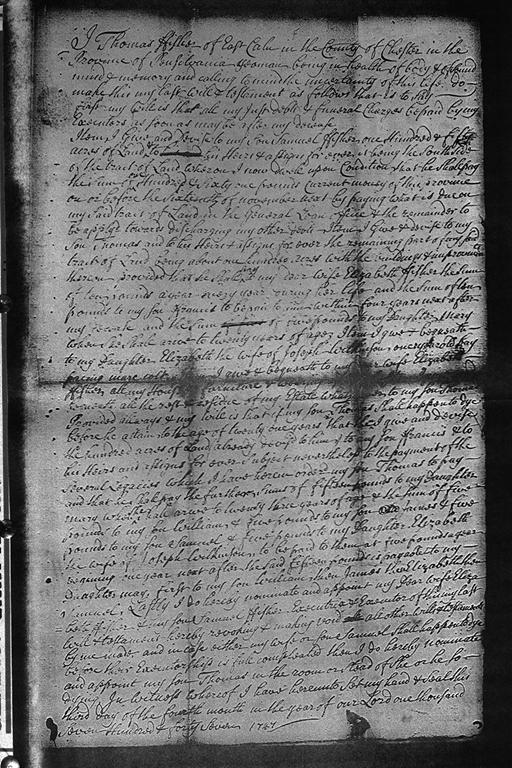 I Thomas ffisher of East Caln in the County of Chester in the
Province of Pensylvania yeoman being in health of body & of sound
mind & memory and calling to mind the uncertainty of this life do
make this my last will & testament as follows that is to say
first my will is that all my Just debts & funeral Charges be paid by my
Executors as soon as may be after my decease
Item I Give and devise to my Son Samuel ffisher one Hundred & fifty
acres of Land to his Heirs & assigns for ever it being the South side
of the tract of Land whereon I now dwell upon Condition that he shall pay
the sum of Hundred & Sixty one pounds Current money of this province
on or before the Sixteenth of november next by paying what is due on
my said tract of Land in the General Loan Office & the remainder to
be apply'd towards discharging my other debts Item I Give & devise to my
Son Thomas and to his Heirs & assigns for ever the remaining part of my said
tract of Land being about one hundred acres with the buildings & improvements
thereon provided that he shall pay my dear wife Elizabeth ffisher the Sum
of ten pounds a year every year during her life and the Sum of ten
pounds to my Son ffrancis to be paid to him within four years next after
my decease and the Sum of five pounds to my Daughter Mary
when she shall arive to twenty years of age Item I give & bequeath
to my Daughter Elizabeth the wife of Joseph Wilkinson one year old bay
pacing mare colt I give & bequeath to my wife Elizabeth
ffisher all my Household furniture &
all the rest & residue of my Estate to my Son Thomas
Provided always & my will is that if my Son Thomas Shall happen to dye
before he attain to the age of twenty one years that then I give and devise
the hundred acres of Land already devised to him to my Son ffrancis & to
his Heirs and assigns for ever Subject nevertheless to the payment of the
Several Legacies which I have herein order'd my Son Thomas to pay
and that he shall pay the further Sum of fifteen pounds to my Daughter
Mary when she shall arive to twenty three years of age & the Sum of five
pounds to my Son William & five pounds to my Son James & five
pounds to my Son Samuel & five pounds to my Daughter Elizabeth
the wife of Joseph Wilkinson to be paid to them at five pounds a year
begining one year next after the said fifteen pounds is payable to my
Daughter mary, first to my Son William then James then Elizabeth then
Samuel, Lastly I do hereby nominate and appoint my Dear wife Eliza
beth ffisher & my Son Samuel ffisher Executrix & Executor of this my last
will & testament hereby revoking & making void all other wills & testaments
by me made and in case either my wife or Son Samuel Shall happen to dye
before their Executorship is full compleated then I do hereby nominate
and appoint my Son Thomas in the room or stead of She or he so
dying In Witness whereof I have hereunto Set my hand & Seal this
third day of the fourth month in the year of our Lord one thousand
Seven Hundred & forty Seven 1747